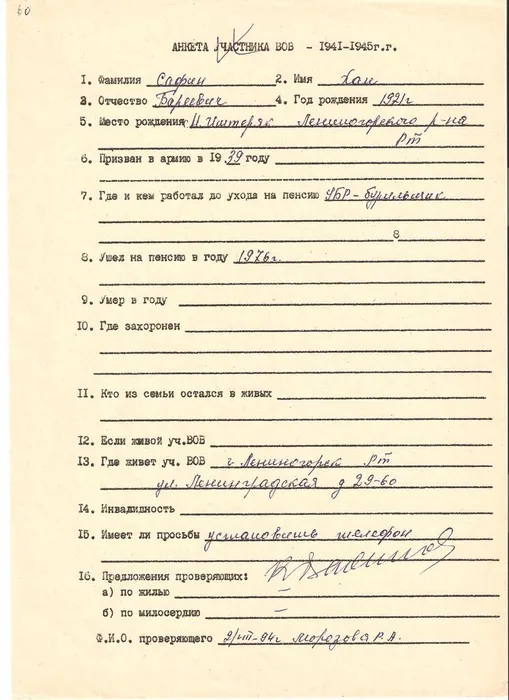 60
АНКЕТА УЧАСТНИКА ВОВ - 1941-1945г.г.
1. Фамилия Сафин 2. Имя Хан
3. Отчество Бареевич 4. Год рождения 1921г
5. Место рождения Н.Иштеряк Лениногорского р-на
РТ
6. Призван в армию в 1939 году
7. Где и кем работал до ухода на пенсию УБР-бурильщик
8
8. Ушел на пенсию в году 1976г.
9. Умер в году
10. Где захоронен
11. Кто из семьи остался в живых
12. Если живой уч.ВОВ
13. Где живет уч. ВОВ г. Лениногорск РТ
ул. Ленинградская д 29-60
14. Инвалидность —
15. Имеет ли просьбы установить телефон
16. Предложения проверяющих:
а) по жилью —
б) по милосердию —
Ф.И.О. проверяющего 2/VIII-94г Морозова Р.А.